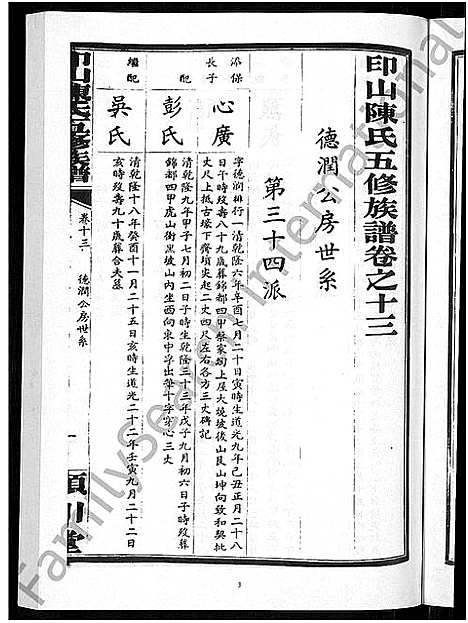 印山陳氏五修族譜卷之十三
德潤公房世系
第三十四派
添保
長子
心廣
字德潤排行一清乾隆六年辛酉七月二十日寅時生道光九年己丑正月二十八
日午時歿壽八十九歲葬錦都四甲蔡家
屋大燒坡後山艮山坤向致和契批
丈尺上抵古壕下齊墳尖起二丈四尺左右各方三丈碑記
配
彭氏
清乾隆九年甲子七月初二日子時生乾隆三十三年戊子九月初六日子時歿葬
錦都四甲虎山街黑坡山內坐西向東中字出筆十字穿心三丈
繼配
吳氏
清乾隆十八年癸酉十一月二十五日亥時生道光二十二年壬寅九月二十二日
亥時歿壽九十歲葬合夫墓
印山陳氏五修族譜
卷十三
德潤公房世系
一
潁川堂
3
FamilySearch International